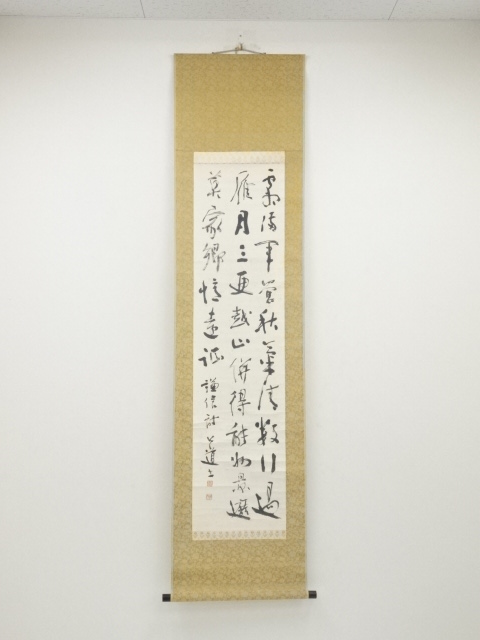 霜満軍營秋氣清數行過
雁月三更越山併得能州景遮
莫家郷憶遠征 謙信詩